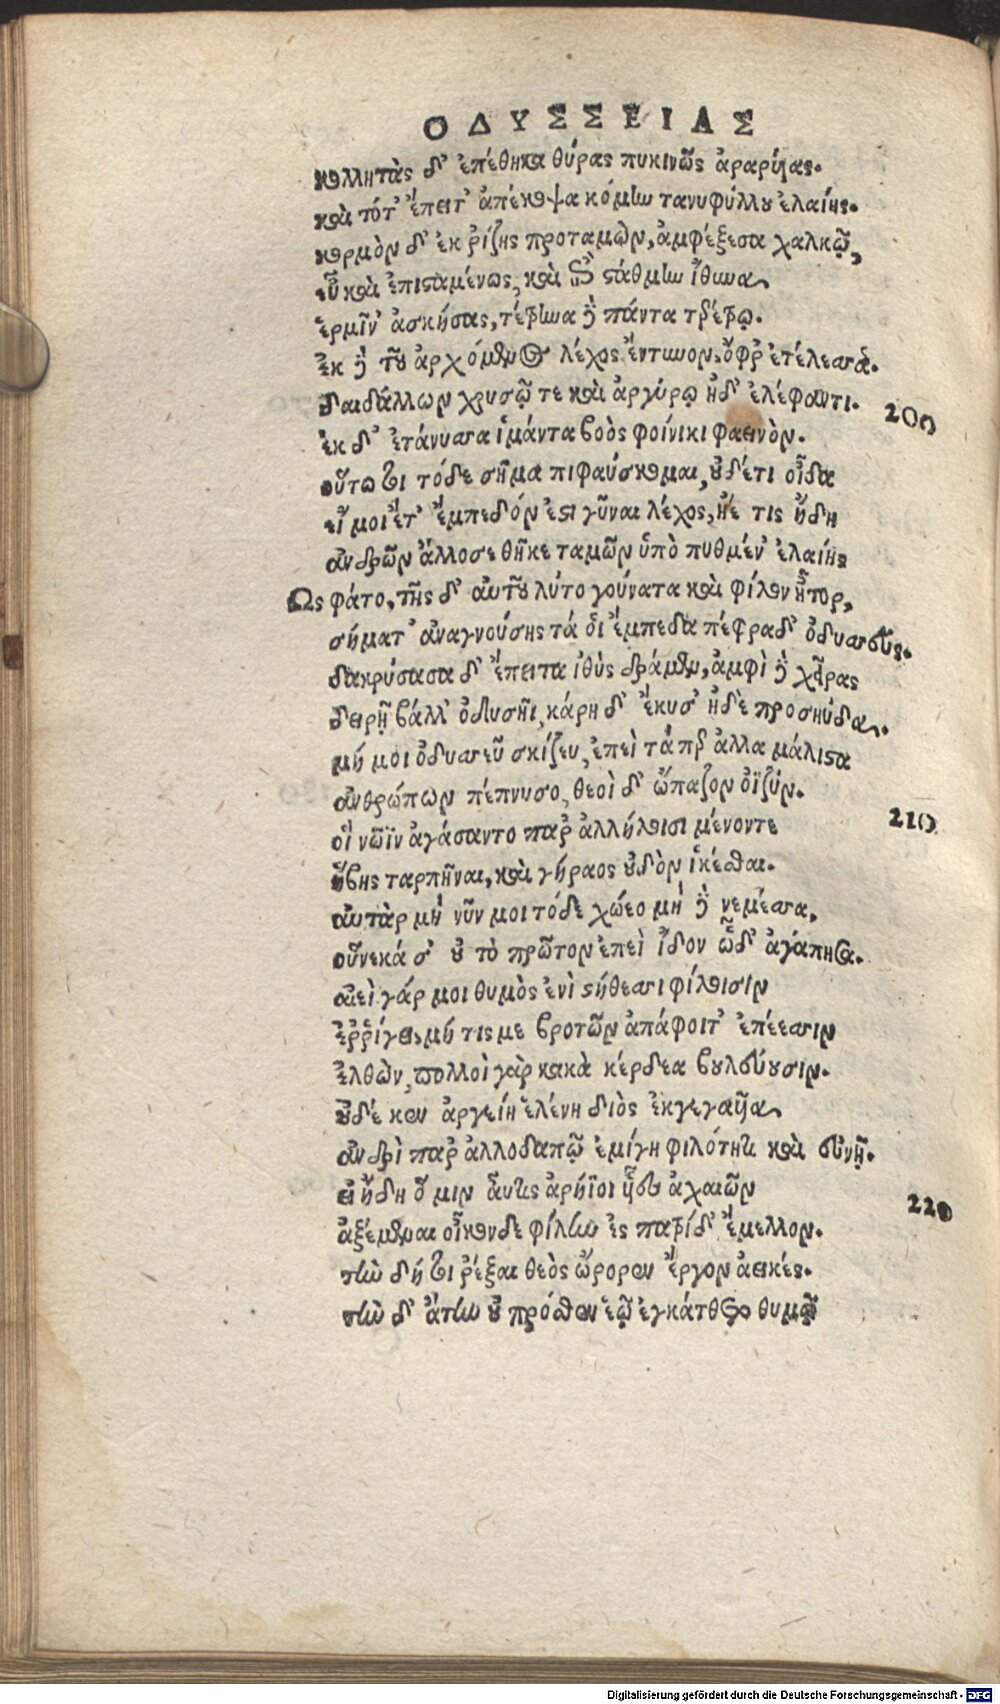 ΟΔΥΣΣΕΙΑΣ
κολλητὰς δ' ἐπέθηκα θύρας πυκινῶς ἀραρυίας.
καὶ τότ' ἔπειτ' ἀπέκοψα κόμην τανυφύλλου ἐλαίης.
κορμὸν δ' ἐκ ῥίζης προταμὼν, ἀμφέξεσα χαλκῷ,
εὖ καὶ ἐπισταμένως, καὶ ἐπὶ στάθμην ἴθυνα,
ἑρμῖν' ἀσκήσας, τέρηνα δὲ πάντα τερέτρῳ.
ἐκ δὲ τοῦ ἀρχόμενος λέχος ἔντυνον, ὄφρ' ἐτέλεσσα.
δαιδάλλων χρυσῷ τε καὶ ἀργύρῳ ἠδ' ἐλέφαντι. 200
ἐκ δ' ἐτάνυσσα ἱμάντα βοὸς φοίνικι φαεινὸν.
οὕτω τοι τόδε σῆμα πιφαύσκομαι, οὐδέτι οἶδα
εἴ μοι ἔτ' ἔμπεδόν ἐστι γῦναι λέχος, ἠέ τις ἤδη
ἀνδρῶν ἄλλοσε θῆκε ταμῶν ὑπὸ πυθμέν' ἐλαίης
Ως φάτο, τῆς δ' αὐτοῦ λύτο γούνατα καὶ φίλον ἦτορ,
σήματ' ἀναγνούσης τά οἱ ἔμπεδα πέφραδ' ὀδυσσεύς.
δακρύσασα δ' ἔπειτα ἰθὺς δράμεν, ἀμφὶ δὲ χεῖρας
δειρῇ βάλλ' ὀδυσῆι, κάρη δ' ἔκυσ' ἠδὲ προσηύδα,
μή μοι ὀδυσσεῦ σκίζευ, ἐπεὶ τά περ ἄλλα μάλιστα
ἀνθρώπων πέπνυσο, θεοὶ δ' ὤπαζον ὀϊζύν. 210
οἵ νῶϊν ἀγάσαντο παρ' ἀλλήλοισι μένοντε
ἥβης ταρπῆναι, καὶ γήραος οὐδὸν ἱκέσθαι.
αὐτὰρ μὴ νῦν μοι τόδε χώεο μὴ δὲ νεμέσσα,
οὕνεκά σ' οὐ τὸ πρῶτον ἐπεὶ ἴδον ὧδ' ἀγάπησα.
αἰεὶ γάρ μοι θυμὸς ἐνὶ στήθεσσι φίλοισιν
ἐῤῥίγει, μή τις με βροτῶν ἀπάφοιτ' ἐπέεσσιν
ἐλθὼν, πολλοὶ γὰρ κακὰ κέρδεα βουλεύουσιν.
οὐδέ κεν ἀργείη ἑλένη διὸς ἐκγεγαῦια,
ἀνδρὶ παρ' ἀλλοδαπῷ ἐμίγη φιλότητι καὶ εὐνῇ.
εἰ ᾔδη ὅ μιν αὖτις ἀρήϊοι ἧες ἀχαιῶν 220
ἀξέμεναι οἶκονδε φίλην ἐς πατρίδ' ἔμελλον.
τὴν δή τοι ῥέξαι θεὸς ὤρορεν ἔργον ἀεικές.
τὴν δ' ἄτην οὐ πρόσθεν ἑῷ ἐγκάτθετο θυμῷ
Digitalisierung gefördert durch die Deutsche Forschungsgemeinschaft - DFG